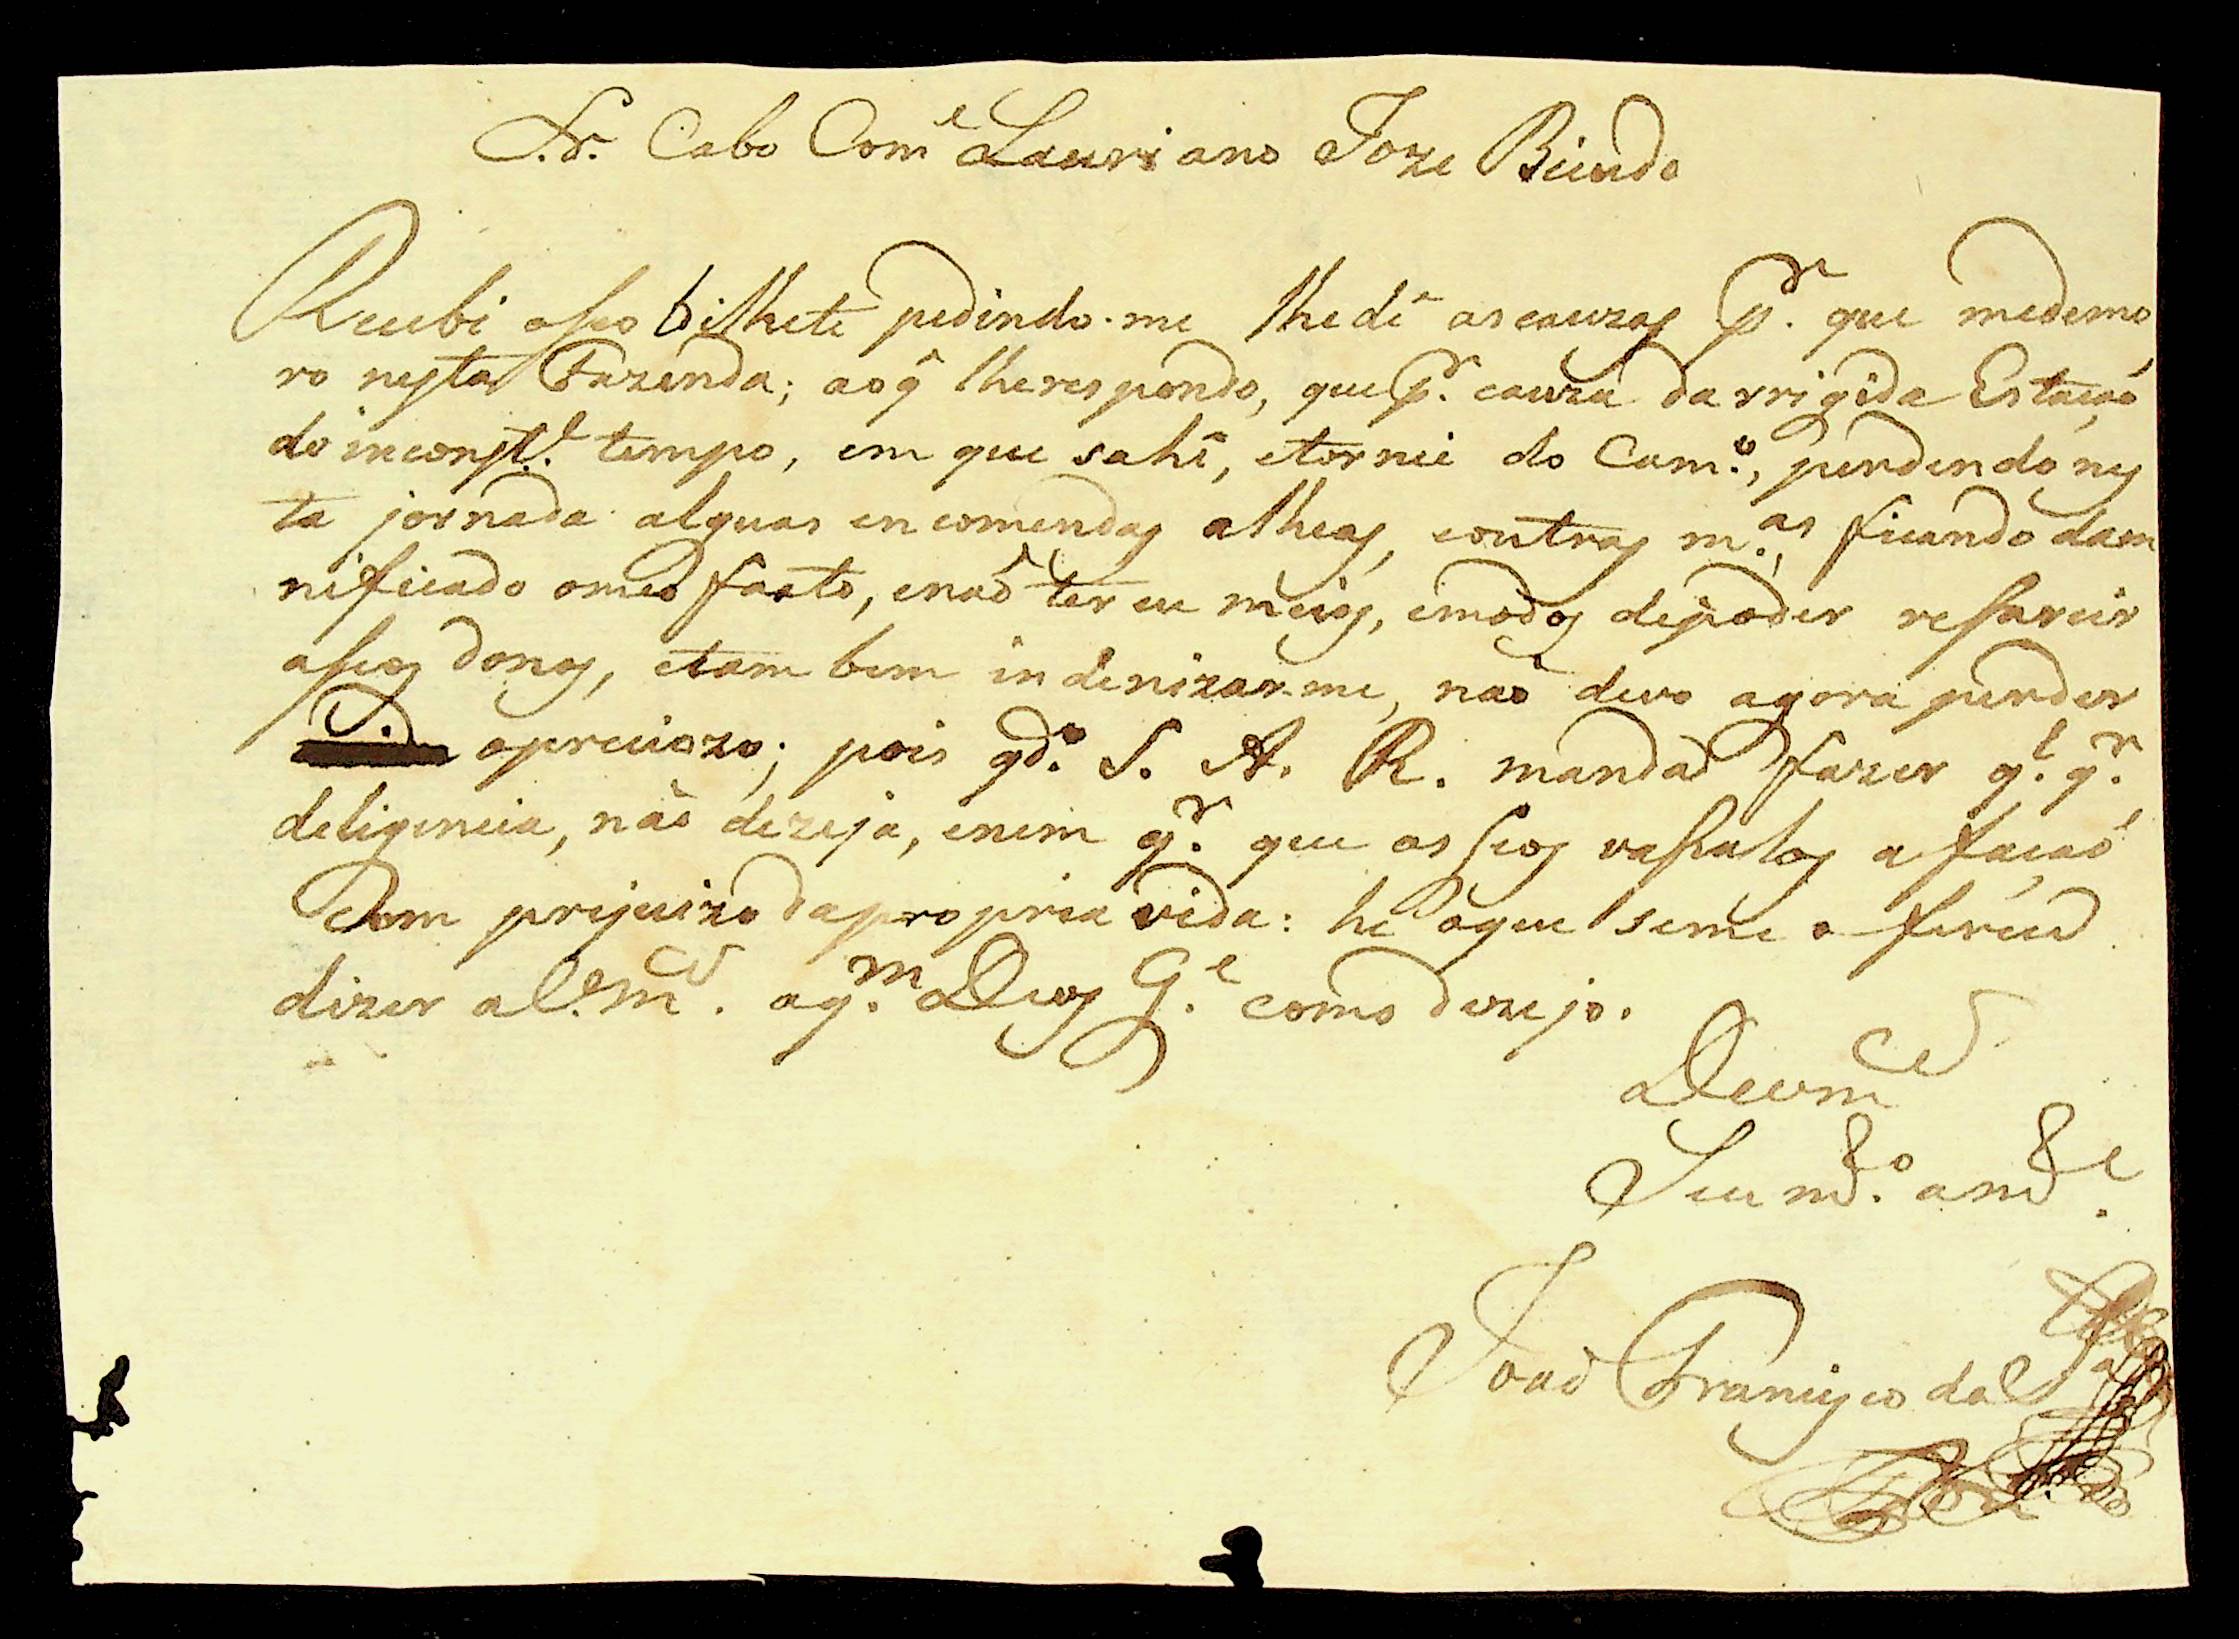 S.r Cabo Com.e Lauriano Joze
Recebi oseo bilhete pedindo-me lhe dê as cauzas p.r que medemo
ro nesta Fazenda; aoq̂ lhe respondo, que p.r cauza da rrigida Estação
do inconst.e tempo, em que sahi, etornei do Cam.o, perdendo nes
ta jornada alguas encomendas alheas, eoutras m.as ficando dam
nificado omeo facto, enaõ ter eu meios, emodos depoder resarcir
aseos donos, etam bem indenizar-me, naõ devo agora perder
opreciozo; pois qd.o S. A. R. mandaõ fazer q.l q.r
deligencia, não dezeja, enem q.r que os seos vassalos a facaõ
Com prejuizo dapropria vida: he oque seme offerece
dizer aV.m.ce aq.m Deos G.e como dezejo.
DeVm.ce
Seu m.o am.e
Joaõ Francisco da